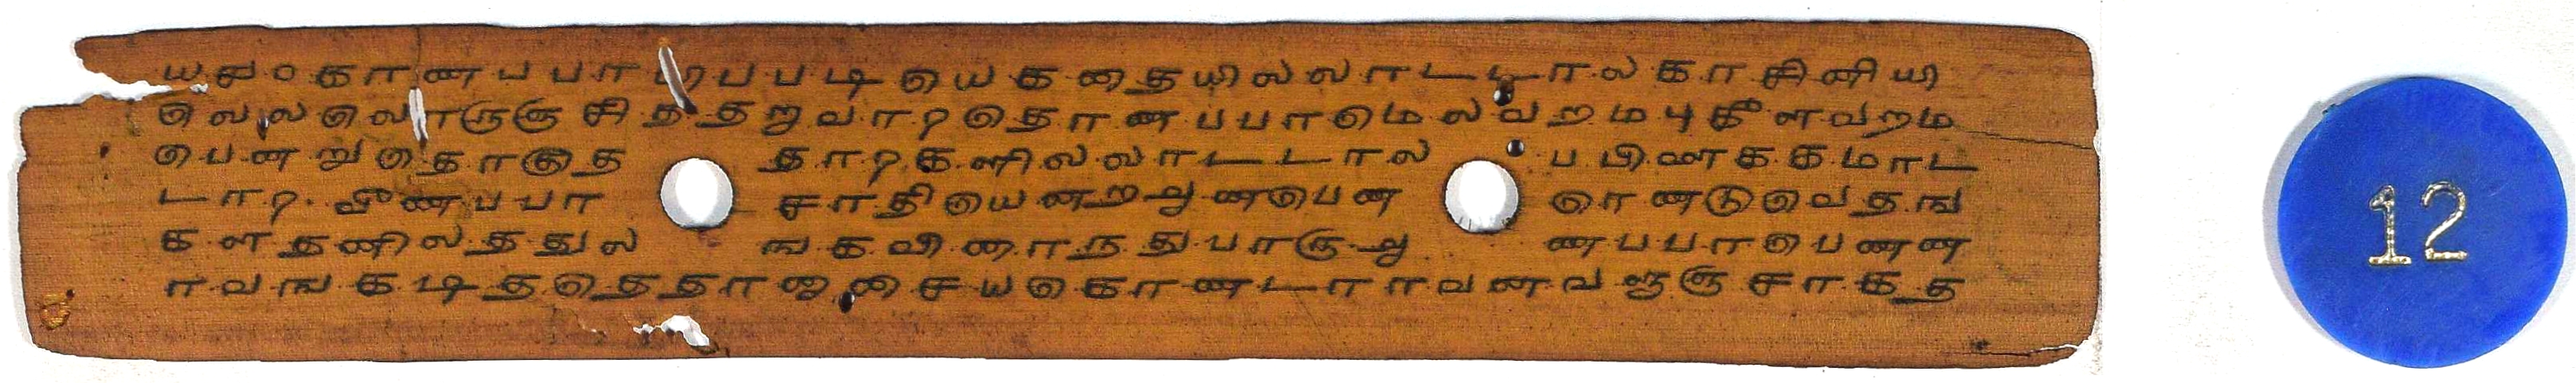 யலுங காணபபாரிபபடி யெகதையிலலாடடாலகாசினியி
லெவலலொருஞசிததறுவாரதொணபபாமெலவறமபுகீளவறம
பெனறுதொகுத தாரகளிலலாடடால பபிணககமாட
டாரவீணபபா சாதியெனறஆணபெண ரெணடுவெதங
களதனிலததுல ஙகவிணாநதுபாருஆ ணபபாபெணண
ாவஙகடிததெதாரு சையகொணடாராவனவளுஞசாகத
12